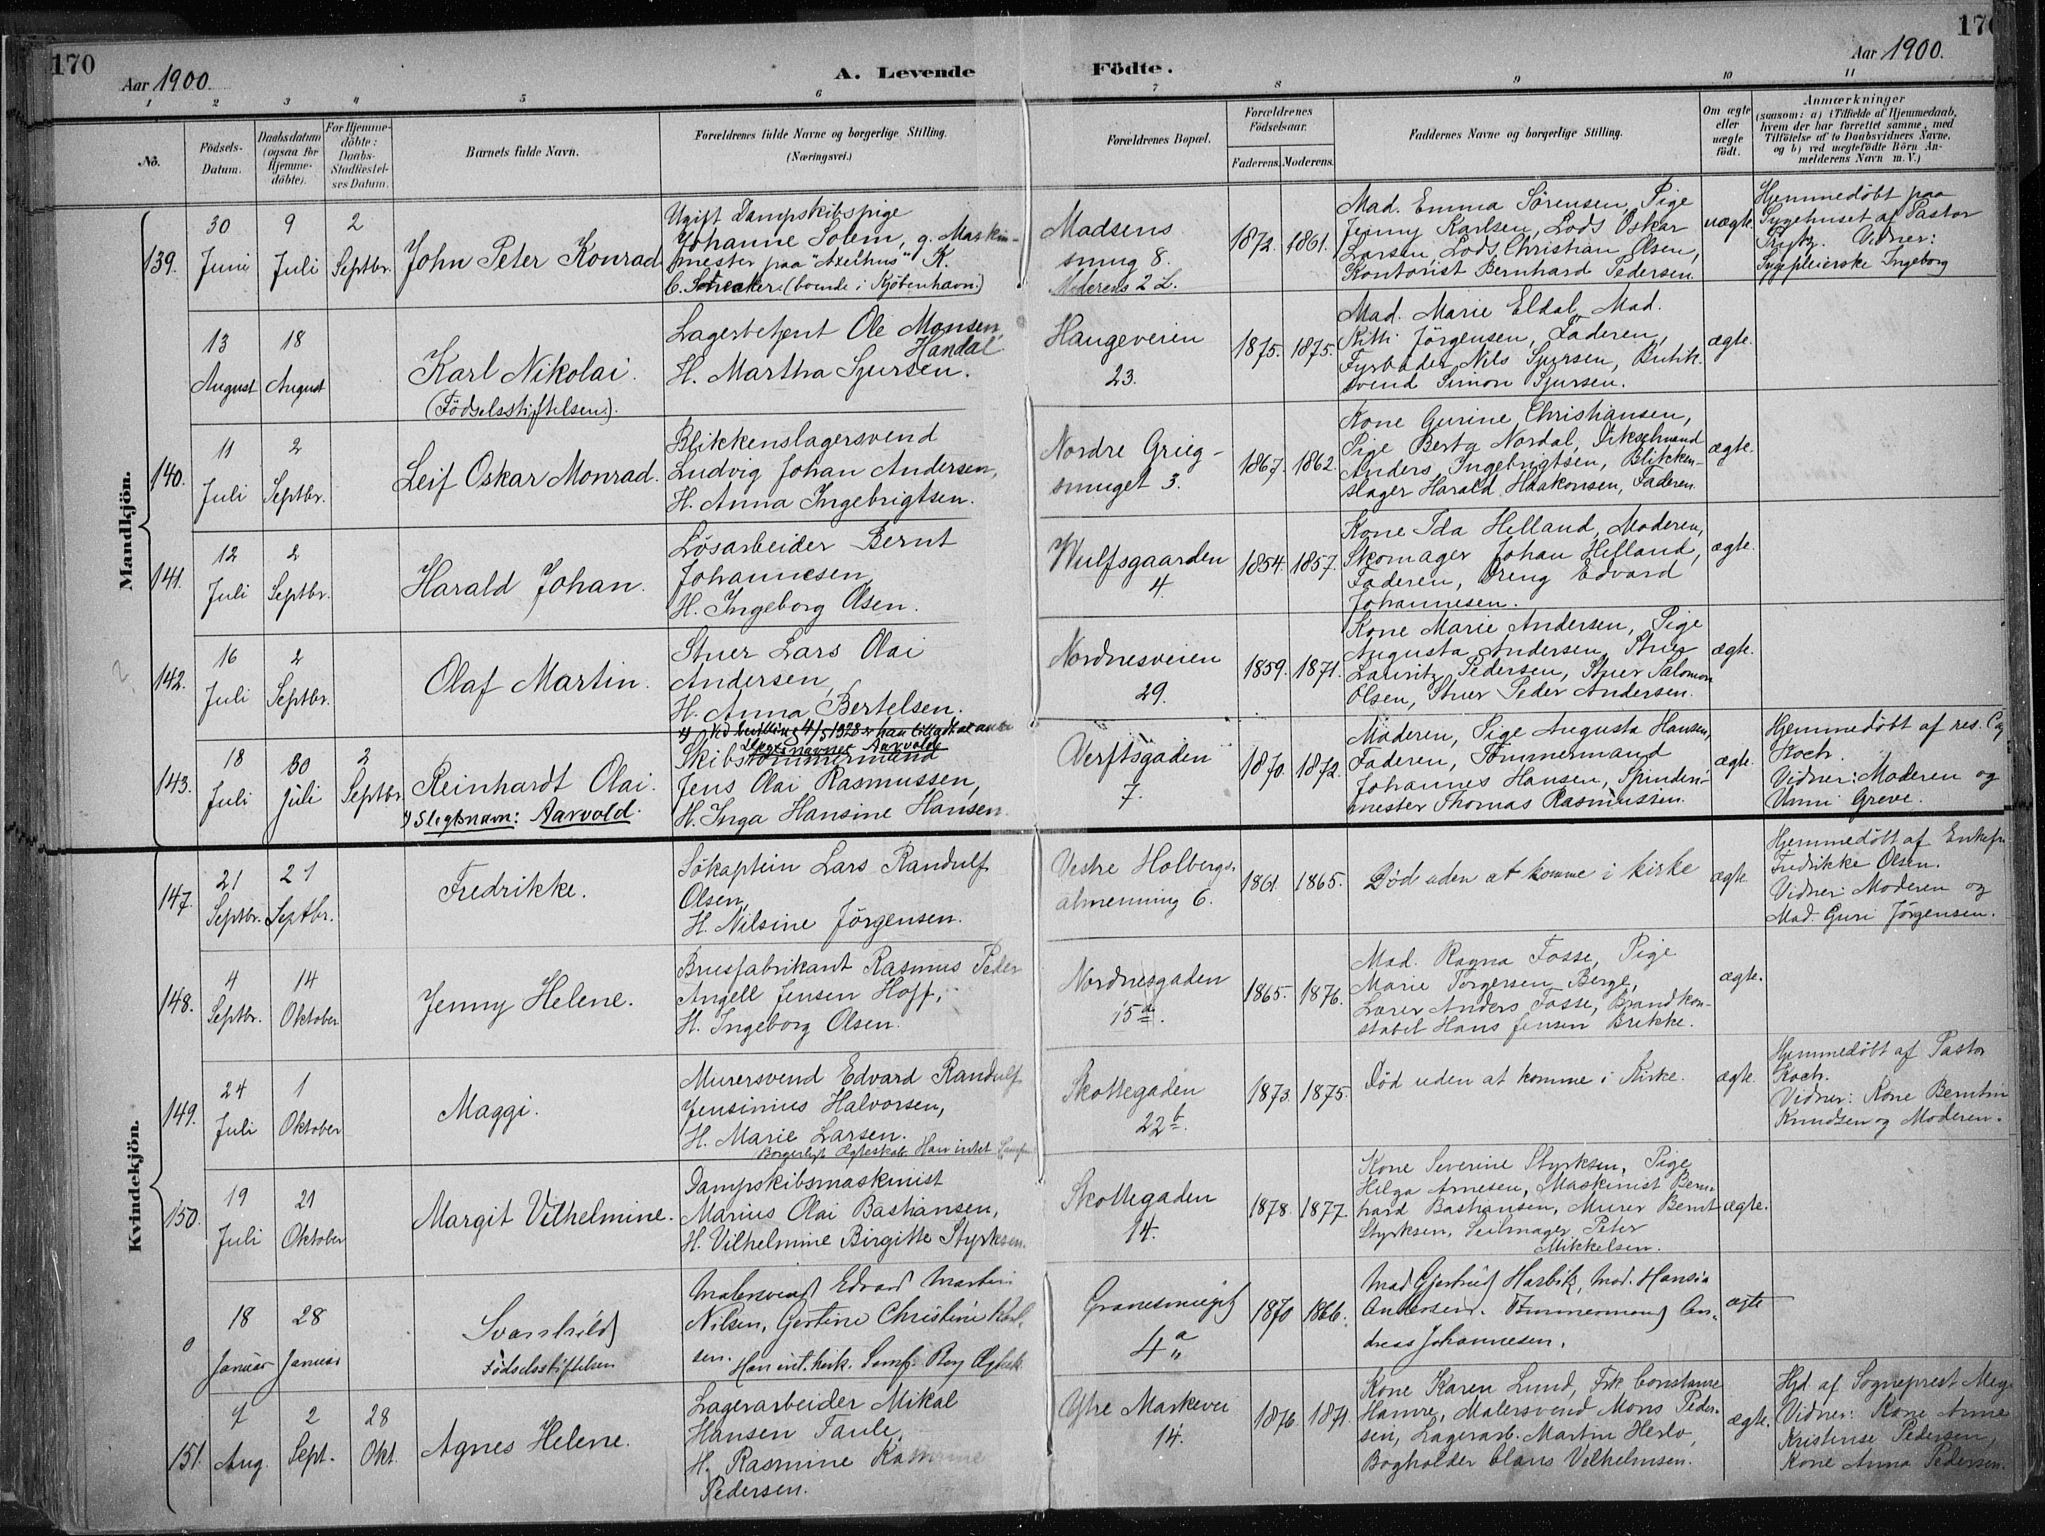 170
Aar 1900.
A. Levende Födte.
Aar 1900.
1 2 3 4 5 6 7 8 9 10 11
No.
Födsels-Datum.
Daabsdatum (ogsaa for Hjemme-döbte).
For Hjemme-döbte: Daabs-Stadfæstel-ses Datum.
Barnets fulde Navn.
Forældrenes fulde Navne og borgerlige Stilling. (Næringsvei.)
Forældrenes Bopæl.
Forældrenes Födselsaar.
Faderens. Moderens.
Faddernes Navne og borgerlige Stilling.
Om ægte eller uægte födt.
Anmærkninger
(saasom: a) i Tilfælde af Hjemmedaab, hvem der har forrettet samme, med Tilföielse af to Daabsvidners Navne, og b) ved uægtefödte Börn An-melderens Navn m. V.)
Mandkjön.
139.
30 Juni
9 Juli
2 Septbr.
John Peter Konrad
Ugift Dampskibspige
Johanne Solem, g. Maskin-
mester paa "Axelhus" K.
(boende i Kjøbenhavn.)
Madsens
smug 8.
Moderens 2 L.
1872. 1861.
Mad. Emma Sørensen, Pige
Jenny Karlsen, Lods Oskar
Larsen, Lods Christian Olsen,
Kontorist Bernhard Pedersen.
uægte.
Hjemmedøbt paa
Sygehuset af Pastor
Vidner:
Sygepleierske Ingeborg
13 August
18 August
Karl Nikolai.
(Födselsstiftelsen).
Lagerbetjent Ole Monsen
Handal
H. Martha Sjursen.
Haugeveien
23.
1875. 1875.
Mad. Marie Eldal, Mad.
Kitti Jørgensen, Faderen,
Fyrbøder Nils Sjursen, Butik-
svend Simon Sjursen.
ægte.
140.
11 Juli
2 Septbr.
Leif Oskar Monrad.
Blikkenslagersvend
Ludvig Johan Andersen,
H. Anna Ingebrigtsen.
Nordre Grieg-
smuget 3.
1867. 1862.
Kone Gurine Christiansen,
Pige Berta Nordal,
Anders Ingebrigtsen, Blikken-
slager Harald Haakonsen, Faderen.
ægte.
141.
12 Juli
2 Septbr.
Harald Johan.
Løsarbeider Bernt
Johannesen,
H. Ingeborg Olsen.
Wulfsgaarden
4.
1854. 1857.
Kone Ida Helland, Moderen,
Skomager Johan Helland,
Faderen, Dreng Edvard
Johannesen.
ægte.
142.
16 Juli
2 Septbr.
Olaf Martin.
Stuer Lars Olai
Andersen,
H. Anna Bertelsen.
Nordnesveien
29.
1859. 1871.
Kone Marie Andersen, Pige
Augusta Andersen, Stuer
Lauritz Pedersen, Stuer Salomon
Olsen, Stuer Peder Andersen.
ægte.
143.
18 Juli
30 Juli
2 Septbr.
Reinhardt Olai.
Slegtsnavn: Aarvold.
Slegtsnavnet Aarvold
Skibstømmermand
Jens Olai Rasmussen,
H. Inga Hansine Hansen.
Verftsgaden
7.
1870. 1872.
Moderen, Pige Augusta Hansen,
Faderen, Tømmermand
Johannes Hansen,
mester Thomas Rasmussen.
ægte.
Hjemmedøbt af res. Cap
Koch.
Vidner: Moderen og
Unni Greve.
Kvindekjön.
147.
21 Septbr.
21 Septbr.
Fredrikke.
Søkaptein Lars Randulf
Olsen,
H. Nilsine Jørgensen.
Vestre Holbergs-
almenning 6.
1861. 1865.
Død uden at komme i kirke
ægte
Hjemmedøbt af Enkefru
Fredrikke Olsen.
Vidner: Moderen og
Mad. Guri Jørgensen.
148.
4 Septbr.
14 Oktober
Jenny Helene.
Brusfabrikant Rasmus Peder
Angell Jensen Hoff,
H. Ingeborg Olsen.
Nordnesgaden
15 a.
1865. 1876.
Mad. Ragna Fosse, Pige
Marie Torgersen Berge,
Lærer Anders Fosse, Brandkon-
stabel Hans Jensen Brekke.
ægte.
149.
24 Juli
1 Oktober
Maggi.
Murersvend Edvard Randulf
Jensinius Halvorsen,
H. Marie Larsen.
Borgerligt Ægteskab. Han intet
Skottegaden
22 b.
1873. 1875.
Død uden at komme i Kirke.
ægte.
Hjemmedøbt af Pastor
Koch.
Vidner: Kone Berntin
Knudsen og Moderen.
150.
19 Juli
21 Oktober
Margit Vilhelmine.
Dampskibsmaskinist
Marius Olai Bastiansen,
H. Vilhelmine Birgitte Styrksen.
Skottegaden
14.
1878. 1877.
Kone Severine Styrksen, Pige
Helga Arnesen, Maskinist Bern-
hard Bastiansen, Murer Bernt
Styrksen, Seilmager Peter
Mikkelsen.
ægte.
0
18 Januar
28 Januar
Svanhild
Födselsstiftelsen
Malersvend Edvard Martin
Nilsen, Gertine Christine Karl-
sen. Han int. kirk. Samf.
4 a
1870 1866.
Mad. Gjertrud Harbitz, Mad. Hansia
Andersen. Tømmermand An-
dreas Johannesen.
ægte
151.
7 Aug.
2 Sept.
28 Okt.
Agnes Helene.
Lagerarbeider Mikal
Hansen Tauli,
H. Rasmine
Pedersen.
Ytre Markevei
14.
1876. 1871.
Kone Karen Lund, Frk. Constanse
Hamre, Malersvend Mons Peder-
sen, Lagerarb. Martin Herlo,
Bogholder Claus Vilhelmsen.
ægte.
Hjd. af Sogneprest
Vidner: Kone Anne
Kristense Pedersen,
Kone Anna Pedersen.